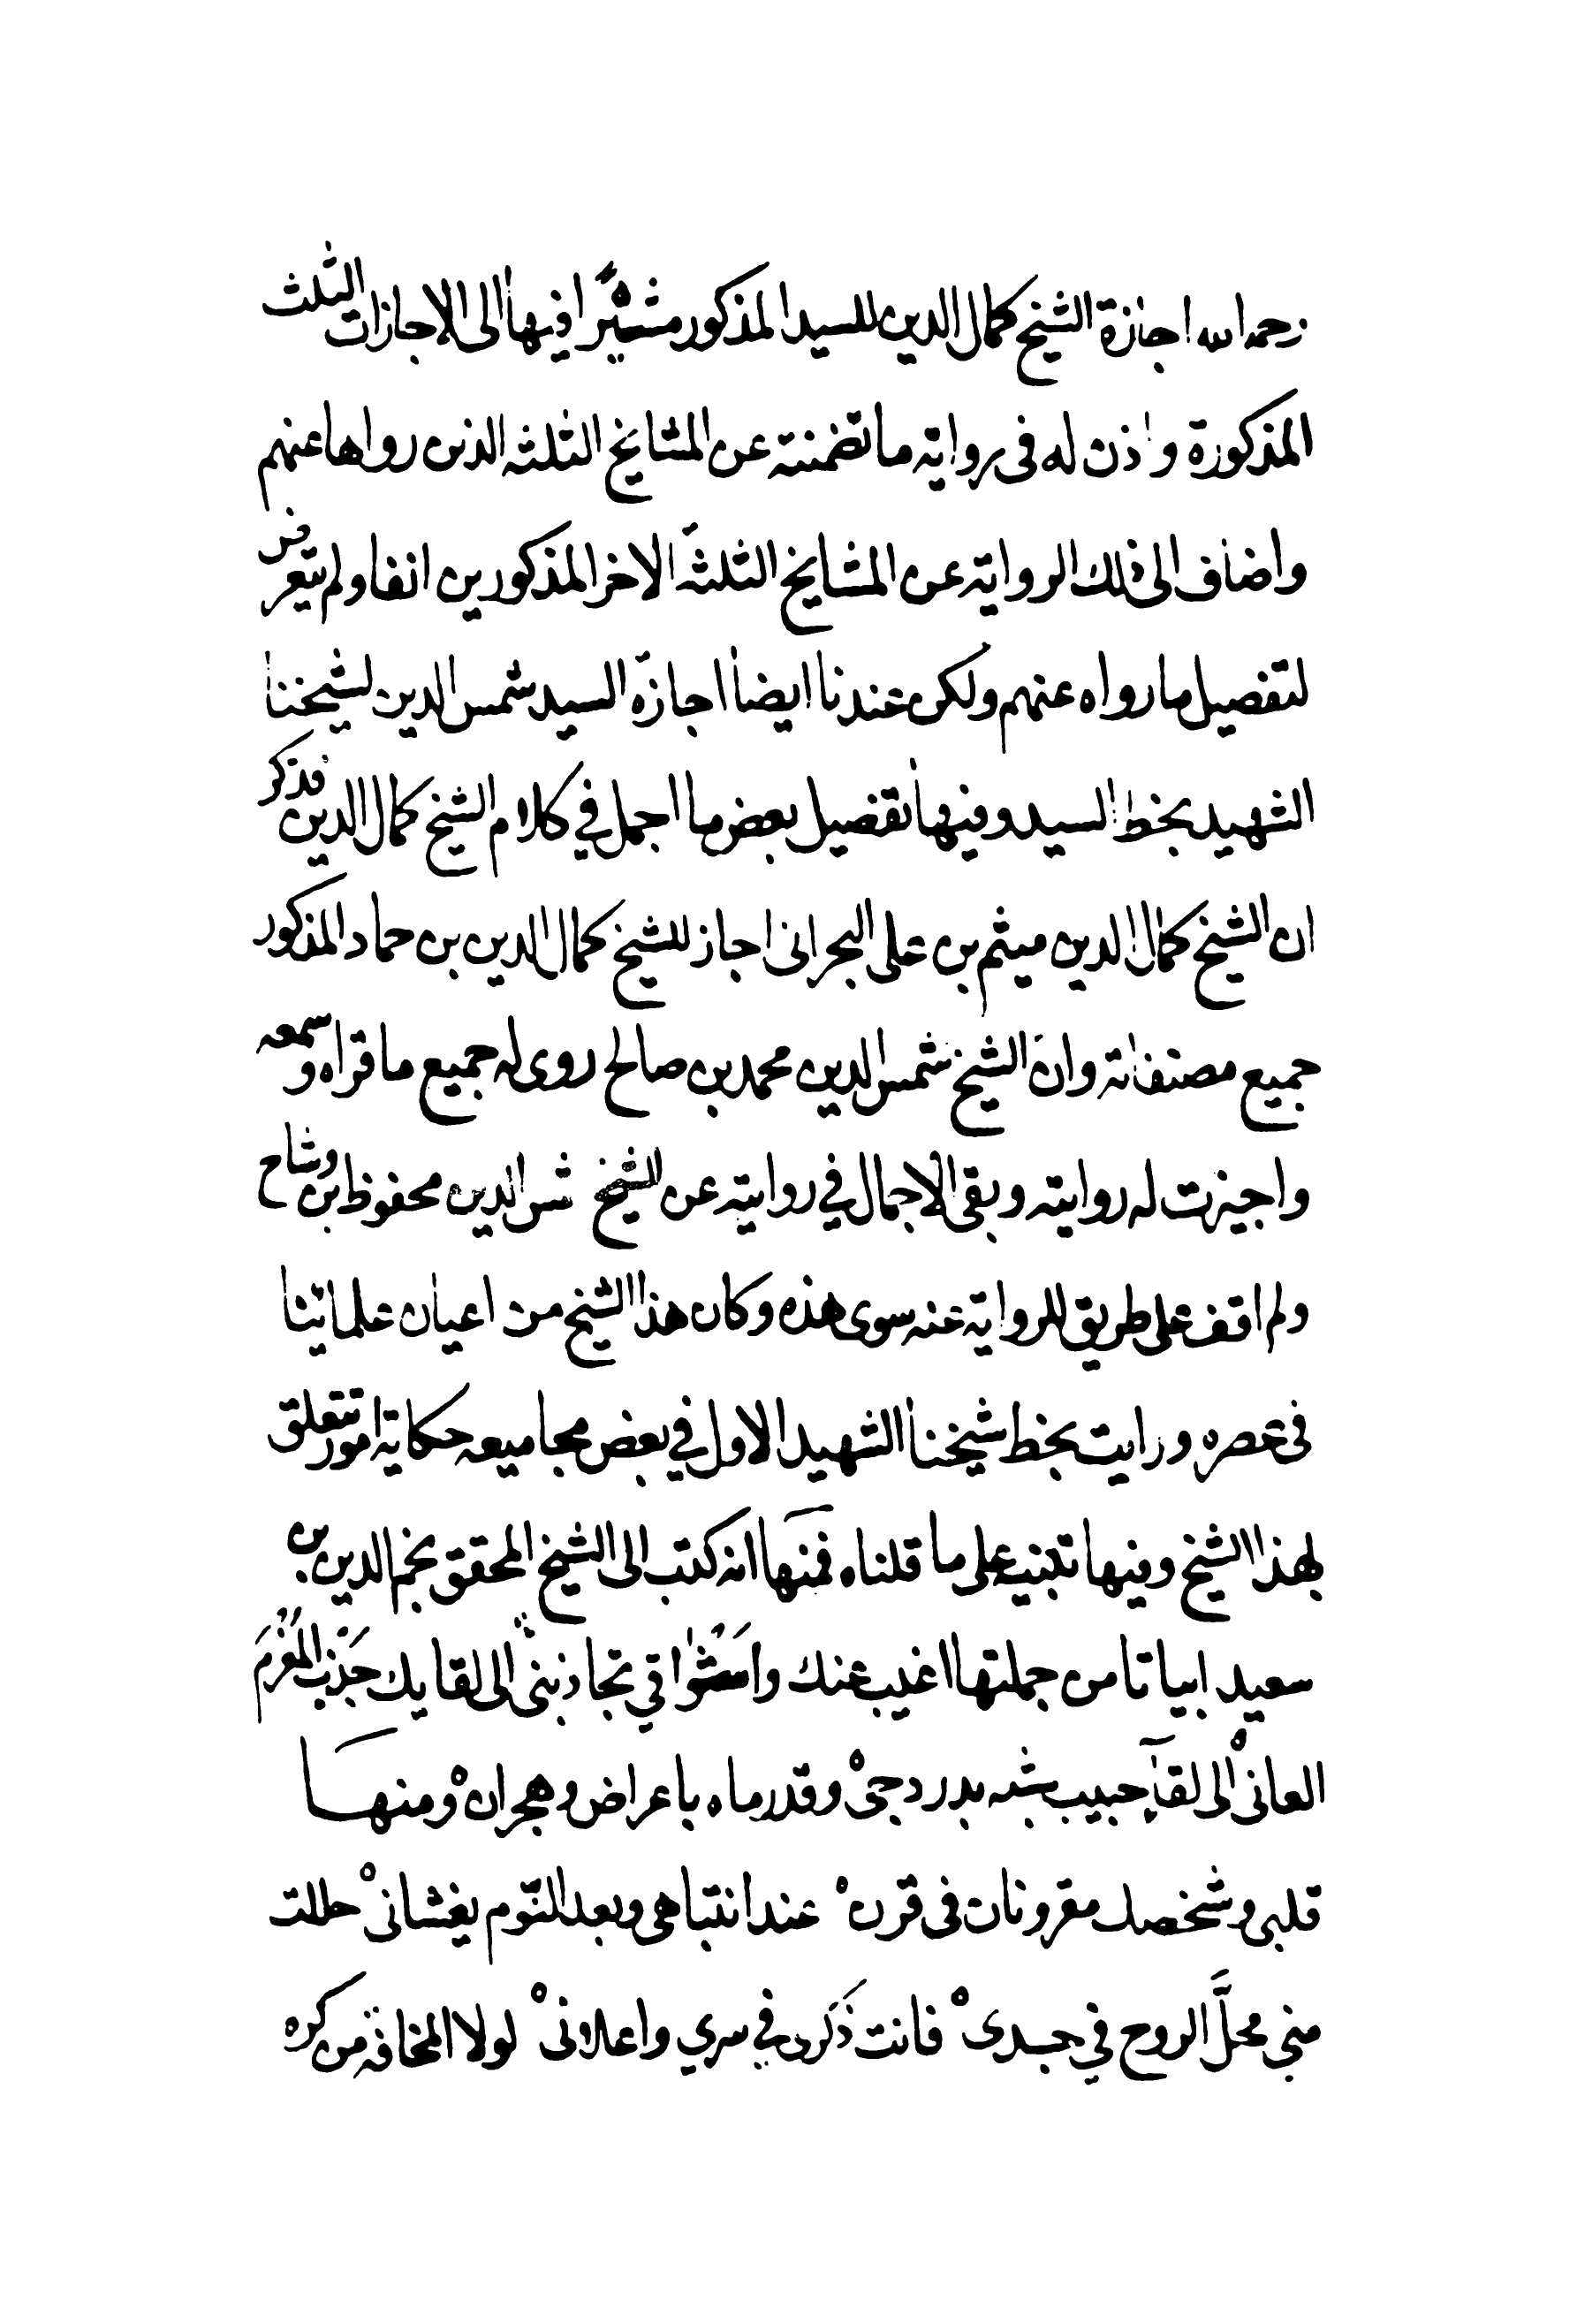 رحمه الله اجازة الشيخ كمال الدين للسيد المذكور مشيرًا فيها الى الاجازات الثلث
المذكورة واذن له فى رواية ما تضمنته عن المشايخ الثلثه الذين رواها عنهم
واضاف الى ذلك الرواية عن المشايخ الثلثة الاخر المذكورين انفا ولم يتعرض
لتفصيل ما رواه عنهم ولكن عندنا ايضا اجازة السيد شمس الدين لشيخنا
الشهيد بخط السيد وفيها تفصيل بعض ما اجمل في كلام الشيخ كمال الدين فذكر
ان الشيخ كمال الدين ميثم بن على البحرانى اجاز للشيخ كمال الدين بن حماد المذكور
جميع مصنفاته وان الشيخ شمس الدين محمد بن صالح روى له جميع ما قراه وسمعه
واجيزت له روايته وبقى الاجمال في روايته عن الشيخ شمس الدين محفوظ بن وشاح
ولم اقف على طريق للرواية عنه سوى هذه وكان هذا الشيخ من اعيان علمائنا
فى عصره ورايت بخط شيخنا الشهيد الاول في بعض مجاميعه حكاية امور تتعلق
بهذا الشيخ وفيها تنبيه على ما قلناه فمنها انه كتب الى الشيخ المحقق نجم الدين بن
سعيد ابياتا من جملتها اغيب عنك واشواقي تجاذبنى الى لقايك جذب المغرم
العانى الى لقآء حبيب شبه بدر دجى وقد رماه باعراض وهجران ومنها
قلبى وشخصك مقرونان فى قرن عند انتباهى وبعد النّوم يغشانى حللت
مني محلّ الروح في جسدى فانت ذكرى في سري واعلانى لولا المخافة من كره